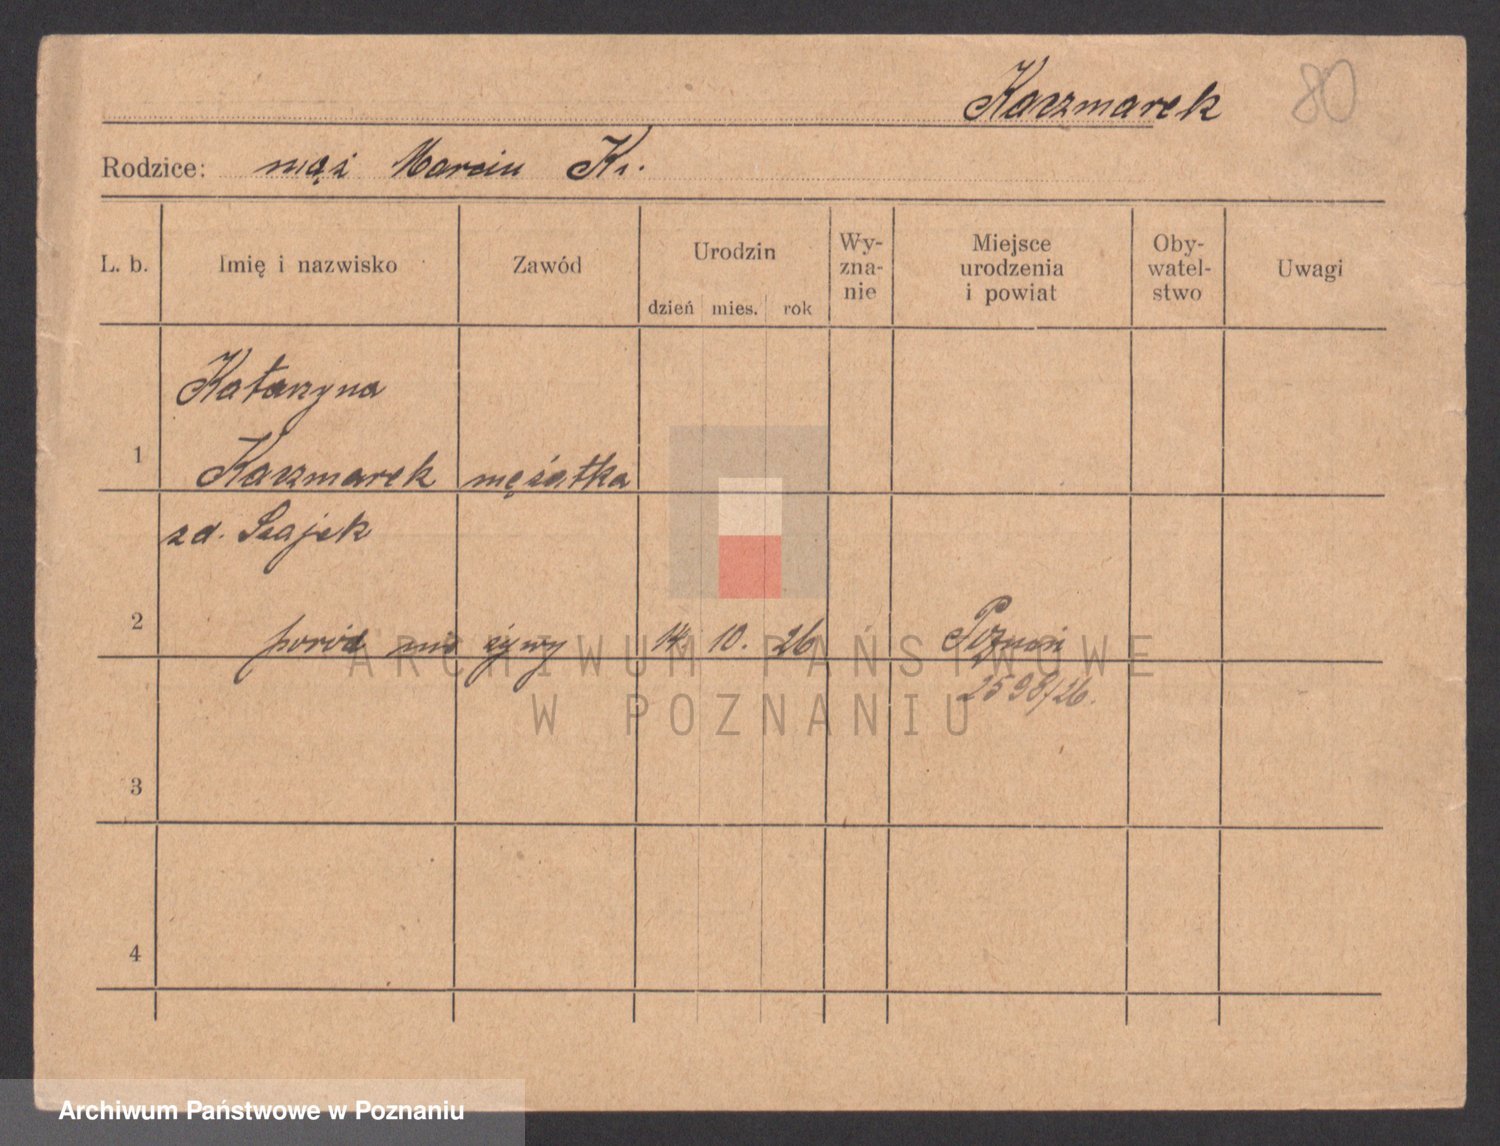 Kaczmarek
80
Rodzice: mąż Marcin K.
L. b. Imię i nazwisko Zawód Urodzin dzień mies. rok Wy-zna-nie Miejsce urodzenia i powiat Oby-watel-stwo Uwagi
Katarzyna
1 Kaczmarek mężatka
zd. Szajek
2 poród nie żywy 14. 10. 26 Poznań
2598/26.
3
4
ARCHIWUM PAŃSTWOWE
W POZNANIU
Archiwum Państwowe w Poznaniu